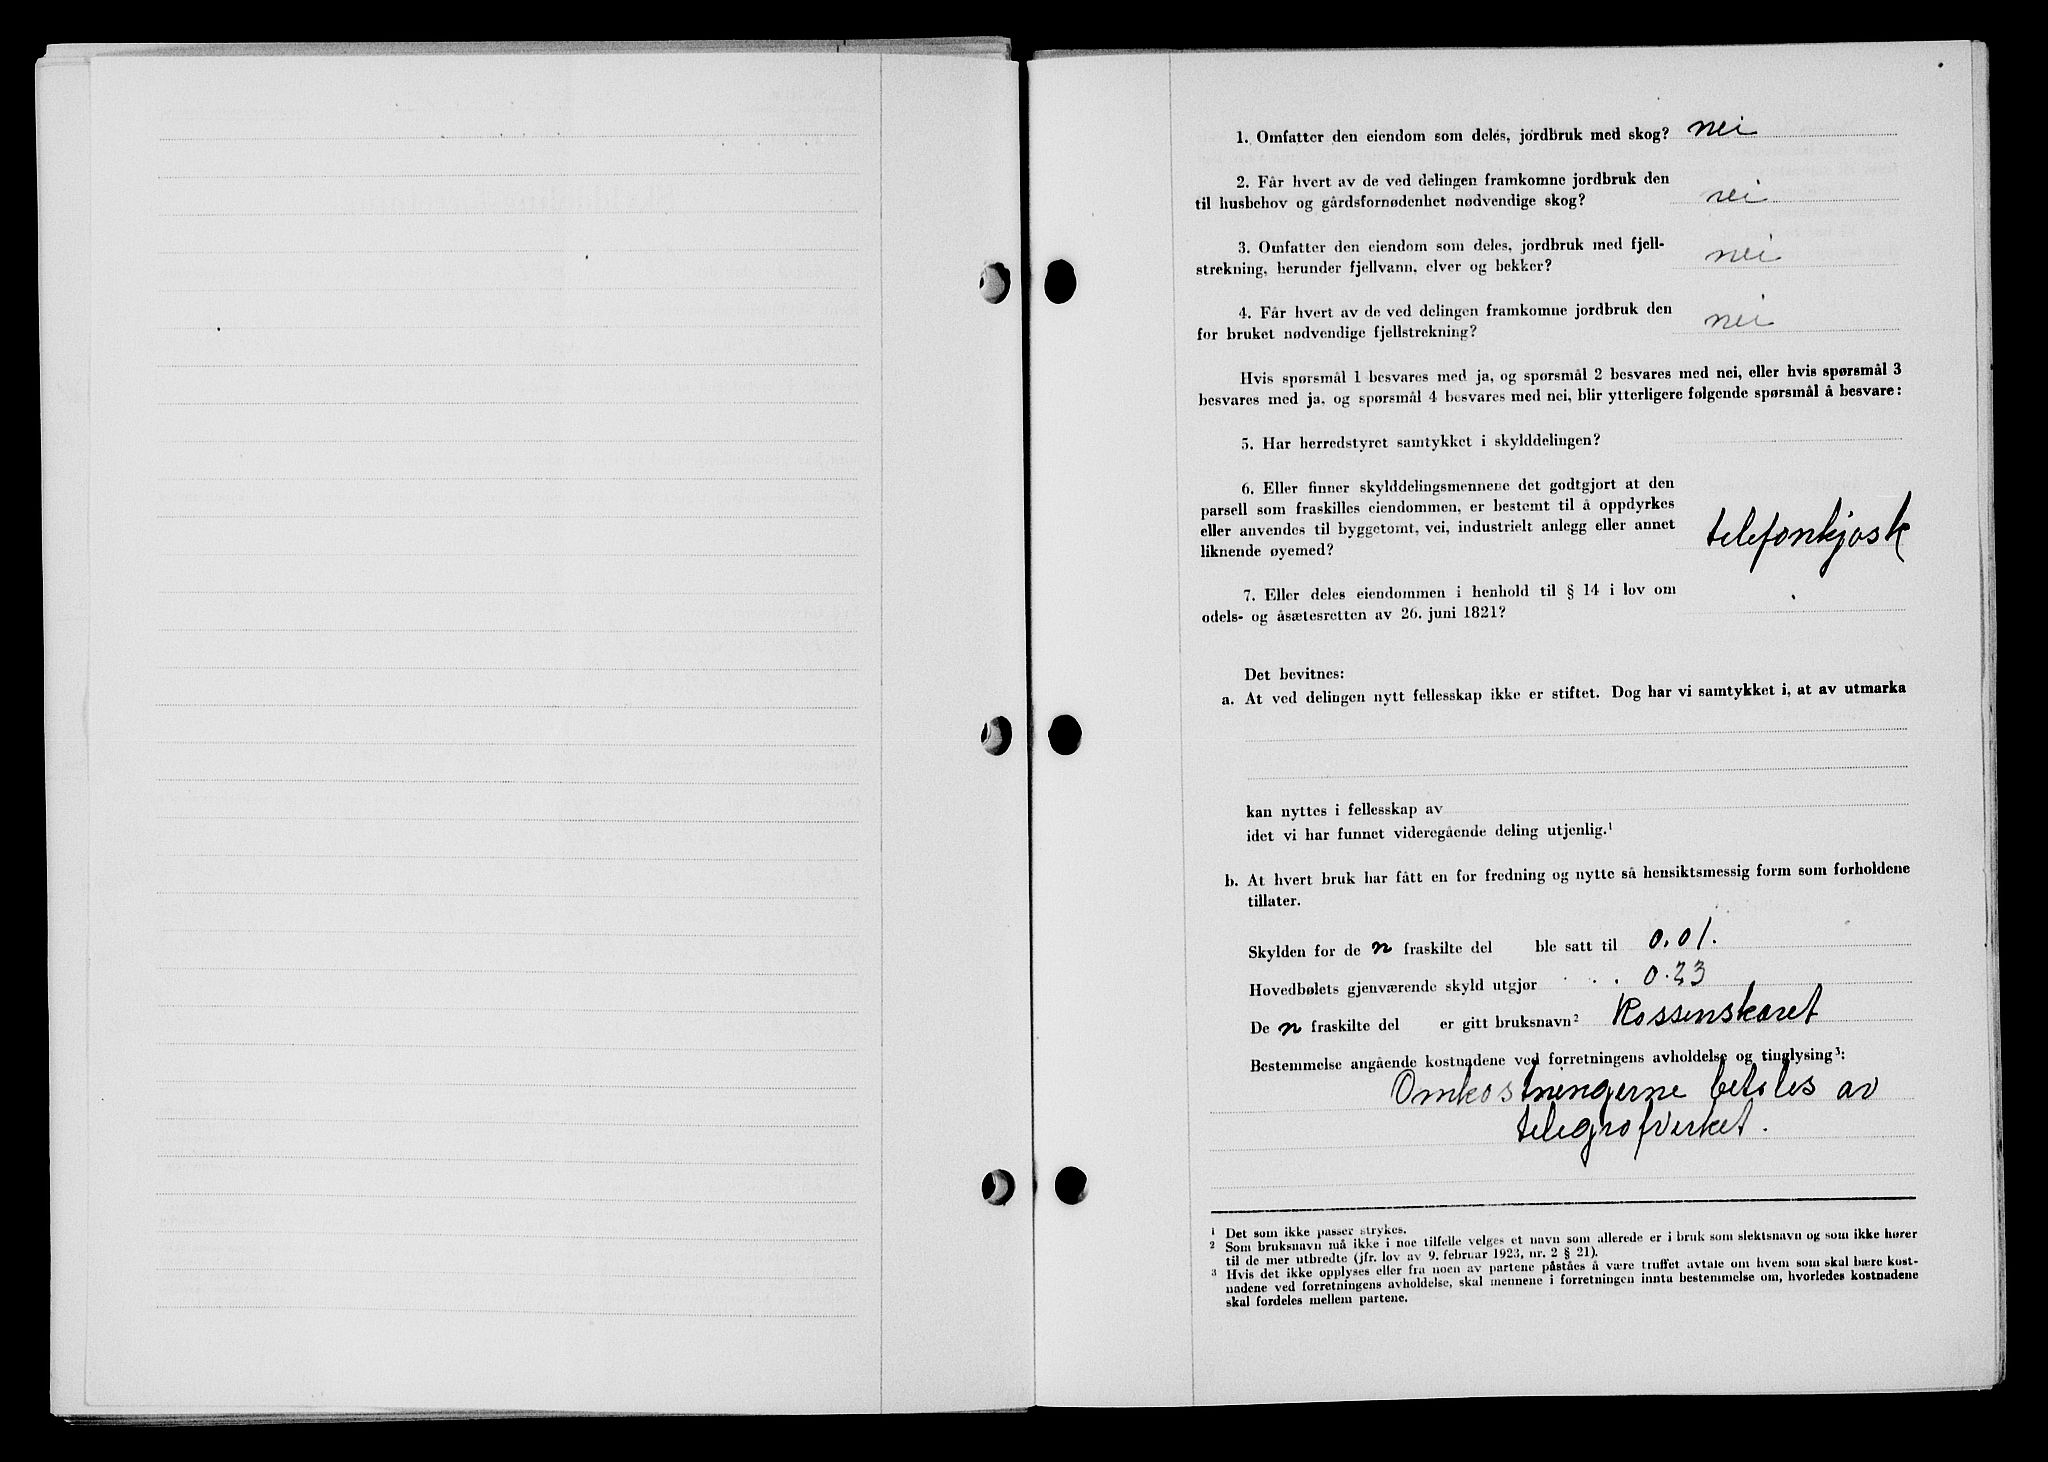 1. Omfatter den eiendom som deles, jordbruk med skog? nei
2. Får hvert av de ved delingen framkomne jordbruk den
til husbehov og gårdsfornødenhet nødvendige skog? nei
3. Omfatter den eiendom som deles, jordbruk med fjell-
strekning, herunder fjellvann, elver og bekker? nei
4. Får hvert av de ved delingen framkomne jordbruk den
for bruket nødvendige fjellstrekning? nei
Hvis spørsmål 1 besvares med ja, og spørsmål 2 besvares med nei, eller hvis spørsmål 3
besvares med ja, og spørsmål 4 besvares med nei, blir ytterligere følgende spørsmål å besvare:
5. Har herredstyret samtykket i skylddelingen?
6. Eller finner skylddelingsmennene det godtgjort at den
parsell som fraskilles eiendommen, er bestemt til å oppdyrkes
eller anvendes til byggetomt, vei, industrielt anlegg eller annet
liknende øyemed? telefonkjosk
7. Eller deles eiendommen i henhold til § 14 i lov om
odels- og åsætesretten av 26. juni 1821?
Det bevitnes:
a. At ved delingen nytt fellesskap ikke er stiftet. Dog har vi samtykket i, at av utmarka
kan nyttes i fellesskap av
idet vi har funnet videregående deling utjenlig.¹
b. At hvert bruk har fått en for fredning og nytte så hensiktsmessig form som forholdene
tillater.
Skylden for de n fraskilte del ble satt til 0.01.
Hovedbølets gjenværende skyld utgjør . . 0.23
De n fraskilte del er gitt bruksnavn² Rossenskaret
Bestemmelse angående kostnadene ved forretningens avholdelse og tinglysing³:
Omkostningerne betales av
telegrafverket.
¹ Det som ikke passer strykes.
² Som bruksnavn må ikke i noe tilfelle velges et navn som allerede er i bruk som slektsnavn og som ikke hører
til de mer utbredte (jfr. lov av 9. februar 1923, nr. 2 § 21).
³ Hvis det ikke opplyses eller fra noen av partene påståes å være truffet avtale om hvem som skal bære kost-
nadene ved forretningens avholdelse, skal mennene i forretningen innta bestemmelse om, hvorledes kostnadene
skal fordeles mellem partene.